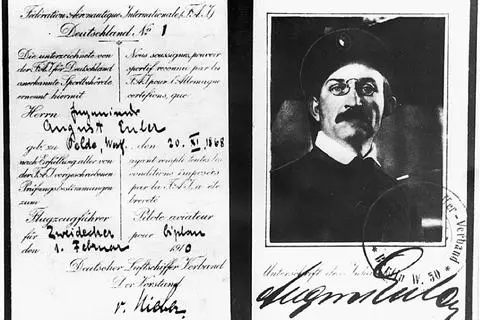 Fédération Aéronautique Internationale (F.A.I.)
Deutschland No 1
Die unterzeichnete von
der F.A.I. für Deutschland
anerkannte Sportbehörde
ernennt hiermit
Nous soussignés, pouvoir
sportif reconnu par la
F.A.I. pour l'Allemagne
certifions, que
Herrn Ingenieur
August Euler
geb. zu Oelde, Westf. den 20. XI. 1868
nach Erfüllung aller von
der F.A.I. vorgeschriebenen
Prüfungsbestimmungen
zum
ayant rempli toutes les
conditions imposées
par la F.A.I. a été
breveté
Flugzeugführer Pilote aviateur
für Zweidecker pour biplan
den 1. Februar 1910
Deutscher Luftschiffer Verband
Der Vorstand
Unterschrift des
August Euler
Verband
Berlin W. 50